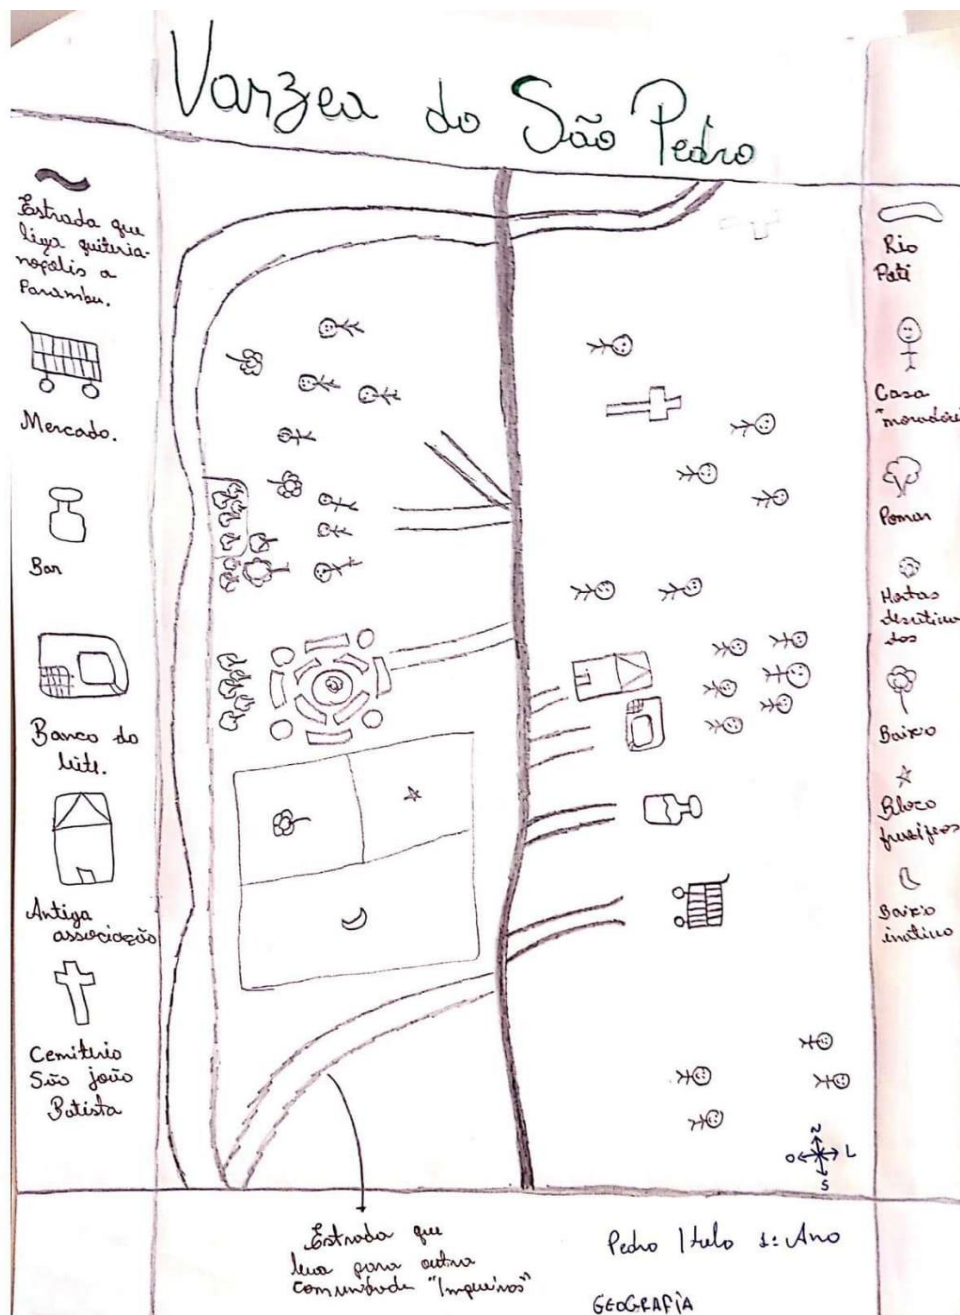 Varzea do São Pedro
Estrada que
liga quiteria-
nopolis a
Parambu.
Mercado.
Bar
Banco do
leite.
Antiga
associação
Cemiterio
São joão
Batista
Rio
Pati
Casa
"moradores
Pomar
Hortas
Baixio
Bloco
Baixio
N
O L
S
Estrada que
leva para outra
comunidade
Pedro Italo 1º Ano
GEOGRAFIA